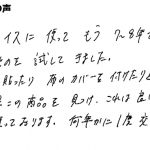 の声
イスに使って もう 7~8年
のを 試して きました。
貼ったり 布のカバーを 付けたり
この商品を 見つけ、これは 良い
っております。何年かに 1度 交